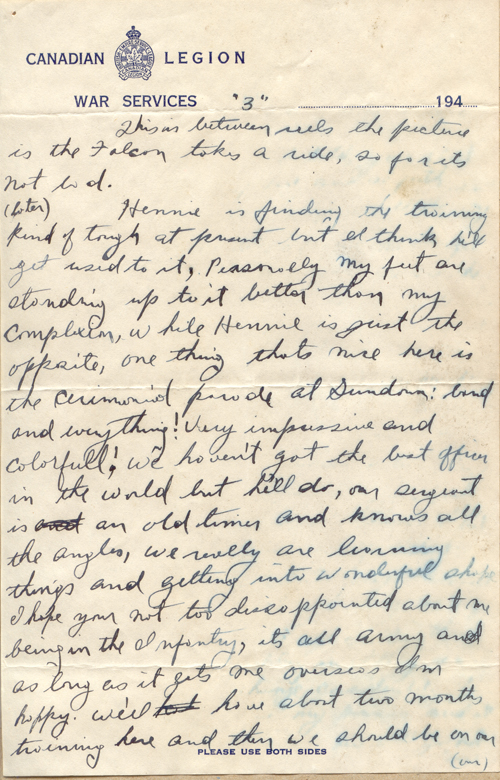 CANADIAN LEGION
WAR SERVICES "3" 194
This is between reels the picture
is the Falcon takes a ride, so far its
not bad.
(Later) Hennie is finding the training
kind of tough at present but I think he'll
get used to it, Personally my feet are
standing up to it better than my
complexion, while Hennie is just the
opposite, one thing thats nice here is
the cerimonial parade at Sundown! band
and everything! Very impressive and
colorfull! we haven't got the best officer
in the world but he'll do, our sergeant
is an old timer and knows all
the angles, we really are learning
things and getting into wonderful shape
I hope your not too dissappointed about me
being in the Infantry, its all army and
as long as it gets me overseas I'm
happy. we'll have about two months
training here and then we should be on our
PLEASE USE BOTH SIDES
(over)